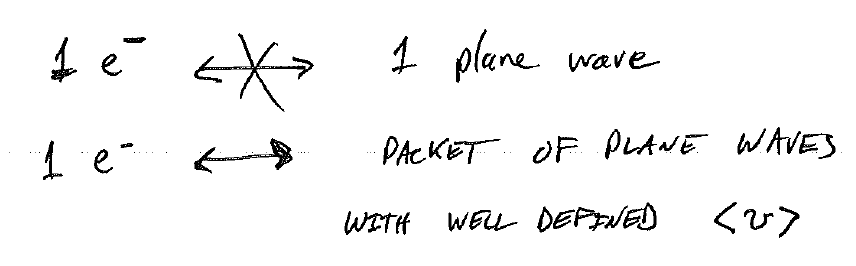 1 e⁻ ↮ 1 plane wave
1 e⁻ ↔ PACKET OF PLANE WAVES
WITH WELL DEFINED <v>